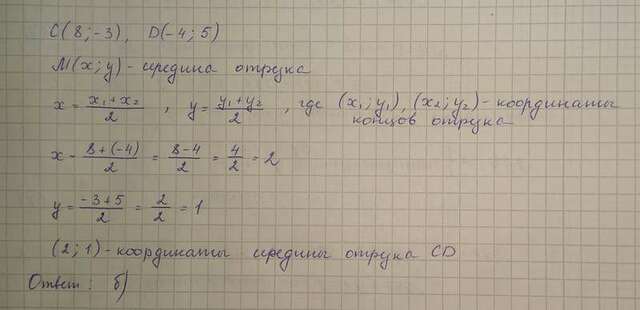 C(8;-3), D(-4; 5)
M(x; y) - середина отрузка
x = (x₁+x₂)/2 , y = (y₁+y₂)/2 , где (x₁; y₁), (x₂; y₂) - координаты
концов отрузка
x - (8+(-4))/2 = (8-4)/2 = 4/2 = 2
y = (-3+5)/2 = 2/2 = 1
(2; 1) - координаты середины отрузка CD
Ответ: б)